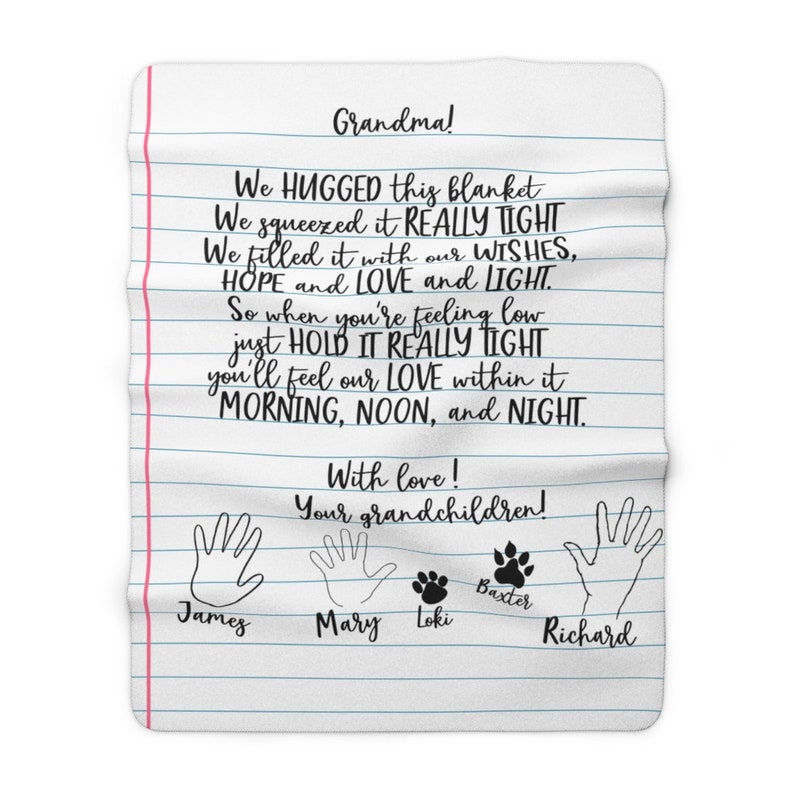 Grandma!
We HUGGED this blanket
We squeezed it REALLY TIGHT
We filled it with our WISHES,
HOPE and LOVE and LIGHT.
So when you're feeling low
just HOLD IT REALLY TIGHT
you'll feel our LOVE within it
MORNING, NOON, and NIGHT.
With love!
Your grandchildren!
James
Mary
Loki
Baxter
Richard